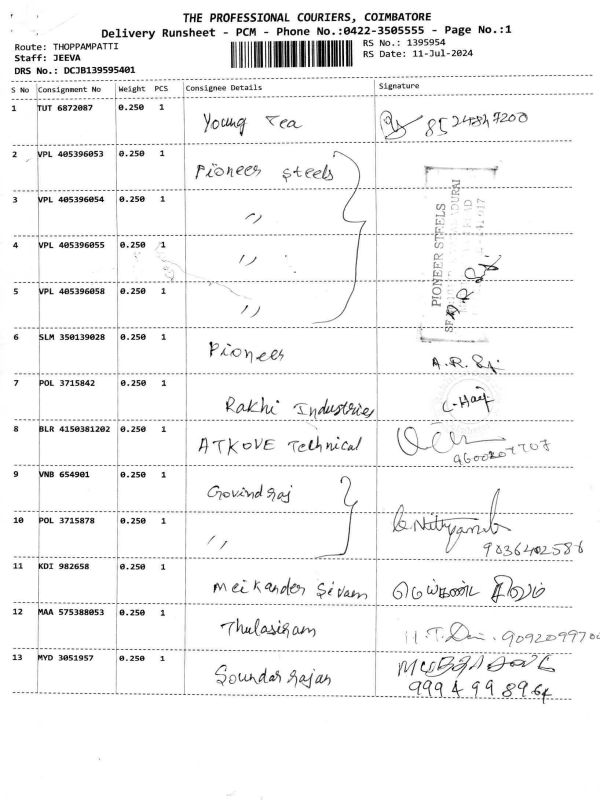 THE PROFESSIONAL COURIERS, COIMBATORE
Delivery Runsheet - PCM - Phone No.:0422-3505555 - Page No.:1
Route: THOPPAMPATTI
RS No.: 1395954
Staff: JEEVA
RS Date: 11-Jul-2024
DRS No.: DCJB139595401
S No Consignment No Weight PCS Consignee Details Signature
1 TUT 6872087 0.250 1 Young Tea
2 VPL 405396053 0.250 1 Pioneer Steels
3 VPL 405396054 0.250 1 〃
4 VPL 405396055 0.250 1 〃
5 VPL 405396058 0.250 1 〃
PIONEER STEELS
6 SLM 350139028 0.250 1 Pioneer A.R.
7 POL 3715842 0.250 1 Rakhi Industries
8 BLR 4150381202 0.250 1 ATKOVE Technical
9600207707
9 VNB 654901 0.250 1 Govindraj
10 POL 3715878 0.250 1 〃
9036402586
11 KDI 982658 0.250 1 Meikander Sivam மெய்கண்ட சிவம்
12 MAA 575388053 0.250 1 Thulasiram
13 MYD 3051957 0.250 1 Soundar rajan
9994998964